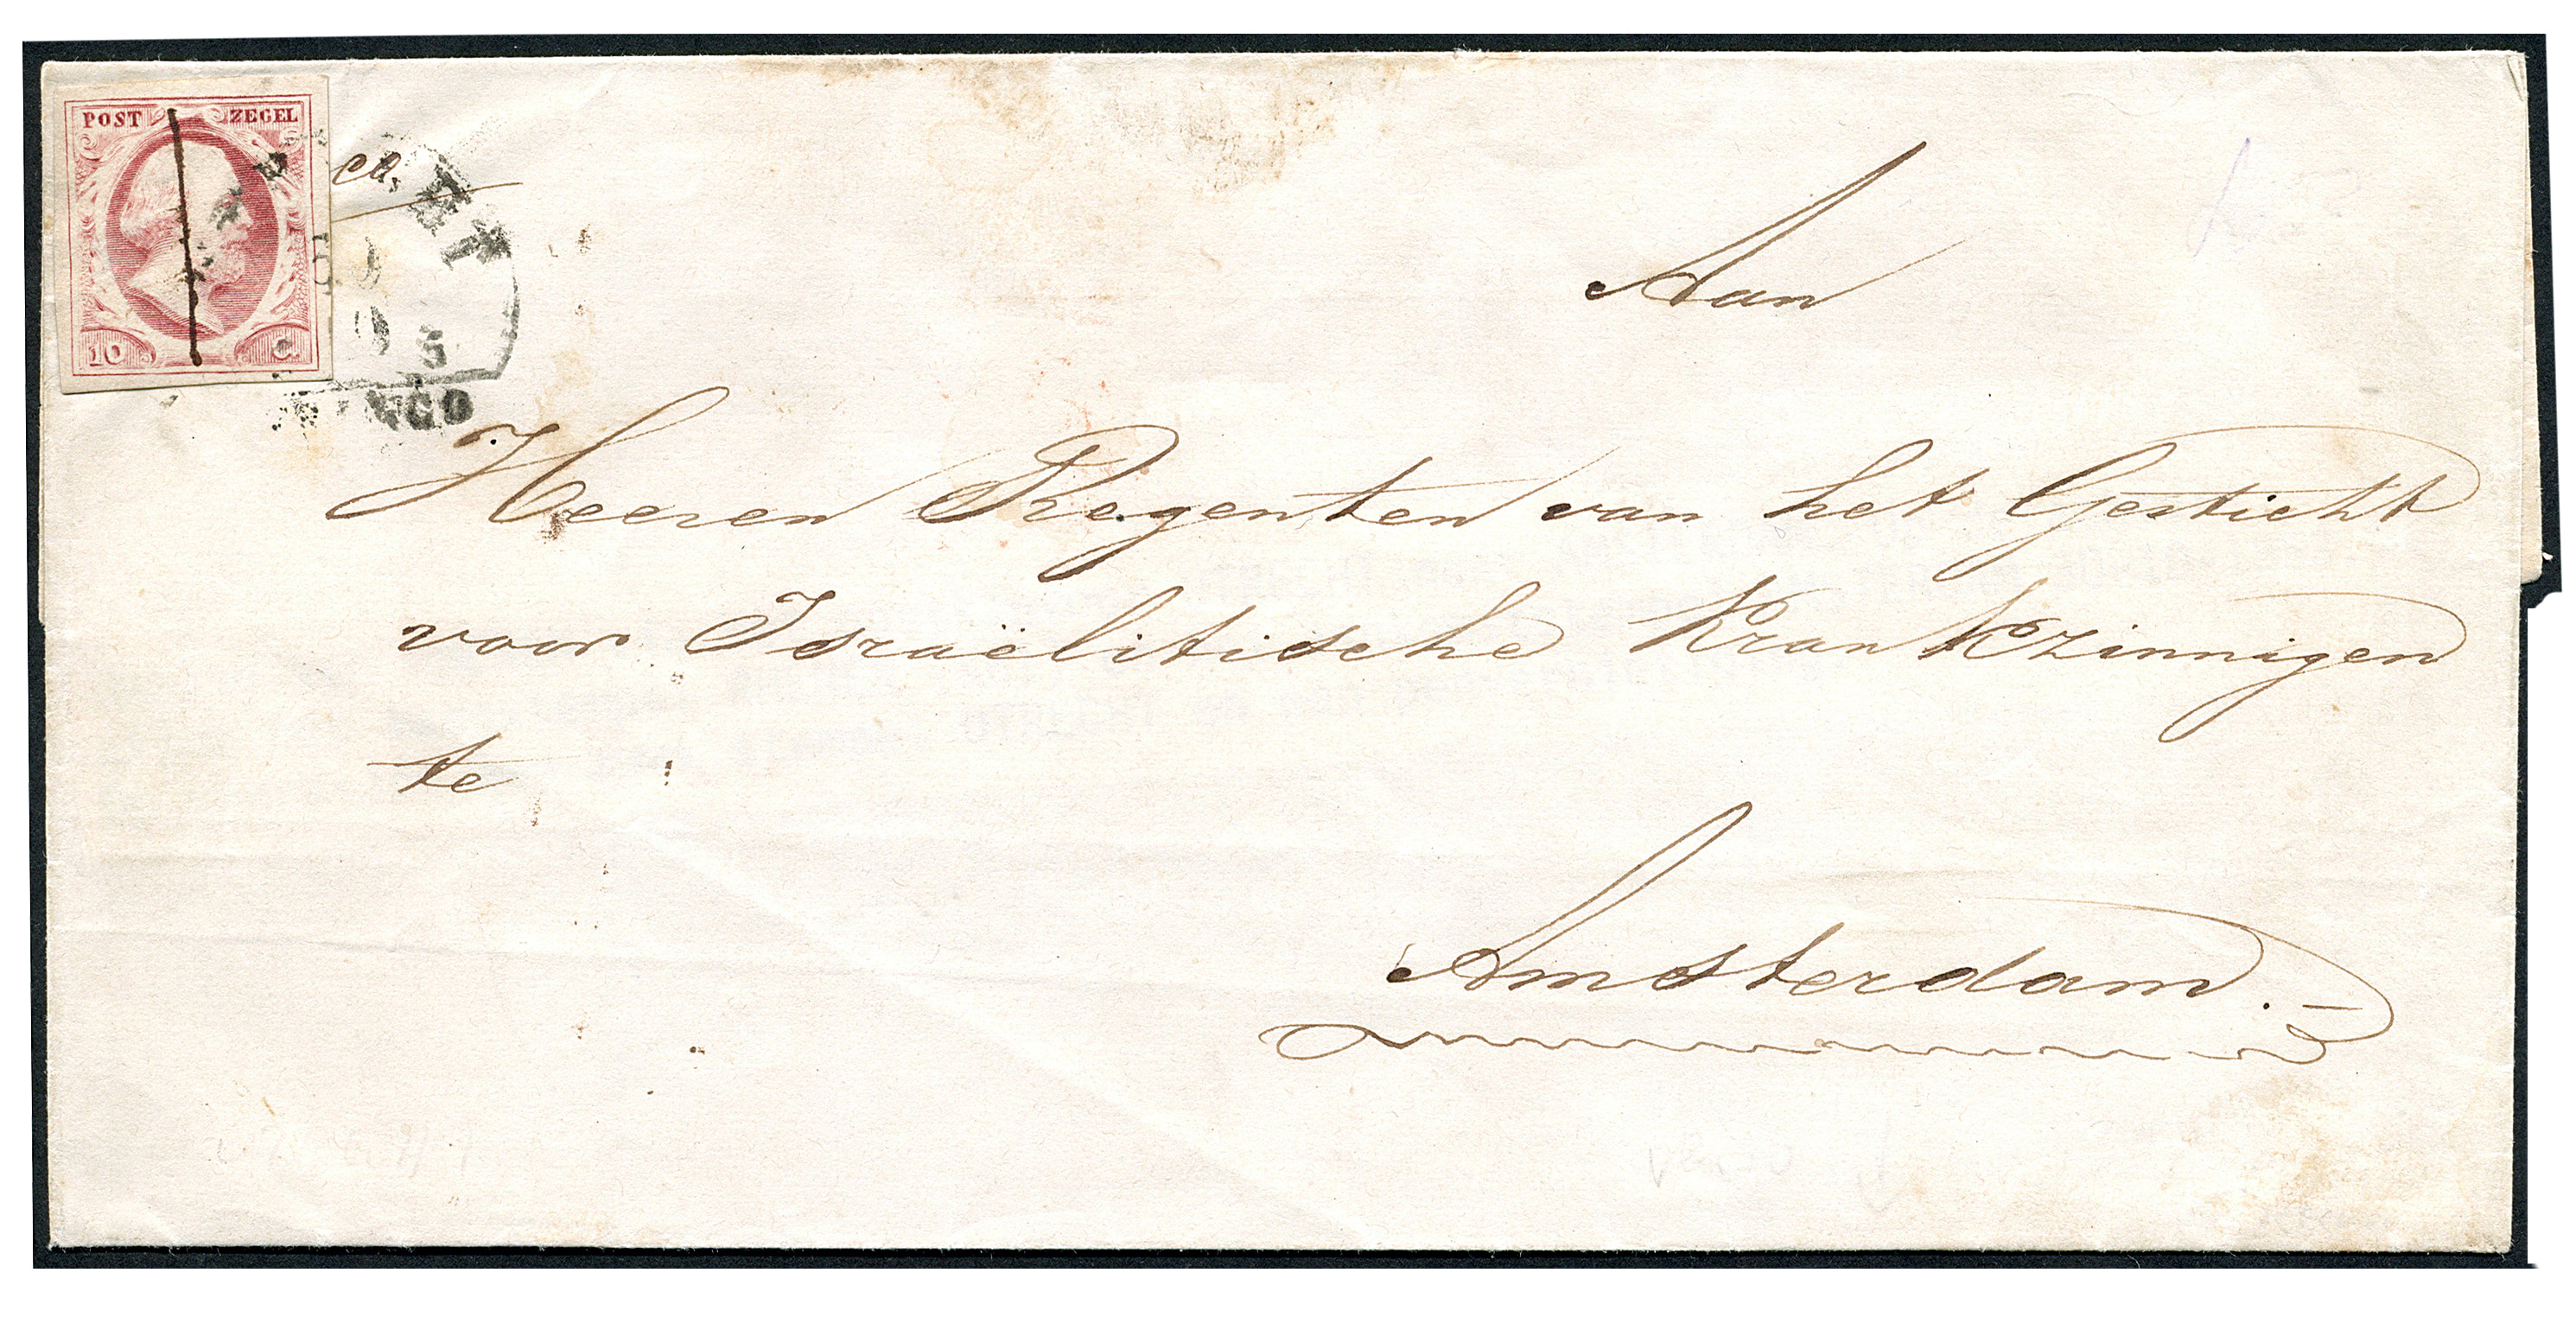 POST ZEGEL
10 C.
Aan
Heeren Regenten van het Gesticht
voor Israëlitische Krankzinnigen
te
Amsterdam.